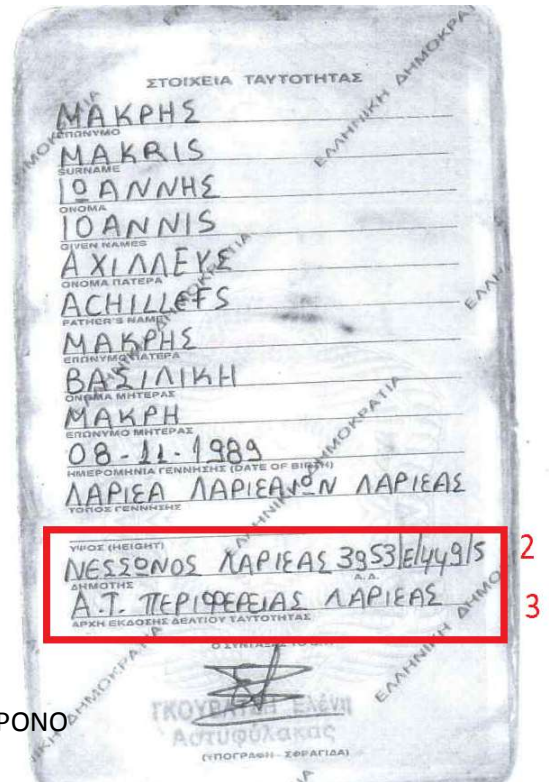 ΣΤΟΙΧΕΙΑ ΤΑΥΤΟΤΗΤΑΣ
ΜΑΚΡΗΣ
ΕΠΩΝΥΜΟ
MAKRIS
SURNAME
ΙΩΑΝΝΗΣ
ΟΝΟΜΑ
IOANNIS
GIVEN NAMES
ΑΧΙΛΛΕΥΣ
ΟΝΟΜΑ ΠΑΤΕΡΑ
ACHILLEFS
FATHER'S NAME
ΜΑΚΡΗΣ
ΕΠΩΝΥΜΟ ΠΑΤΕΡΑ
ΒΑΣΙΛΙΚΗ
ΟΝΟΜΑ ΜΗΤΕΡΑΣ
ΜΑΚΡΗ
ΕΠΩΝΥΜΟ ΜΗΤΕΡΑΣ
08-11-1989
ΗΜΕΡΟΜΗΝΙΑ ΓΕΝΝΗΣΗΣ (DATE OF BIRTH)
ΛΑΡΙΣΑ ΛΑΡΙΣΑΙΩΝ ΛΑΡΙΣΑΣ
ΤΟΠΟΣ ΓΕΝΝΗΣΗΣ
ΥΨΟΣ (HEIGHT)
2
ΝΕΣΣΩΝΟΣ ΛΑΡΙΣΑΣ 3953/Ε/449/5
ΔΗΜΟΤΗΣ Α.Α.
3
Α.Τ. ΠΕΡΙΦΕΡΕΙΑΣ ΛΑΡΙΣΑΣ
ΑΡΧΗ ΕΚΔΟΣΗΣ ΔΕΛΤΙΟΥ ΤΑΥΤΟΤΗΤΑΣ
Ο ΣΥΝΤΑΞΑΣ
Ελένη
ΡΟΝΟ
Αστυφύλακας
(ΥΠΟΓΡΑΦΗ - ΣΦΡΑΓΙΔΑ)
ΕΛΛΗΝΙΚΗ ΔΗΜΟΚΡΑΤΙΑ